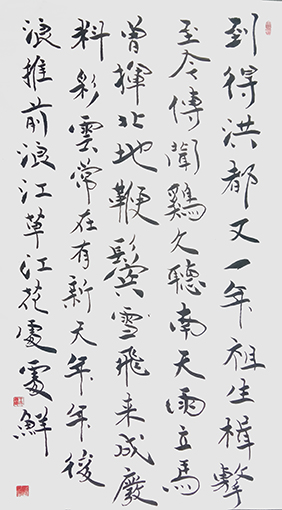 到得洪都又一年祖生楫擊
至今傳聞鷄久聽南天雨立馬
曾揮北地鞭鬢雪飛来成廢
料彩雲常在有新天年年後
浪推前浪江草江花處處鮮